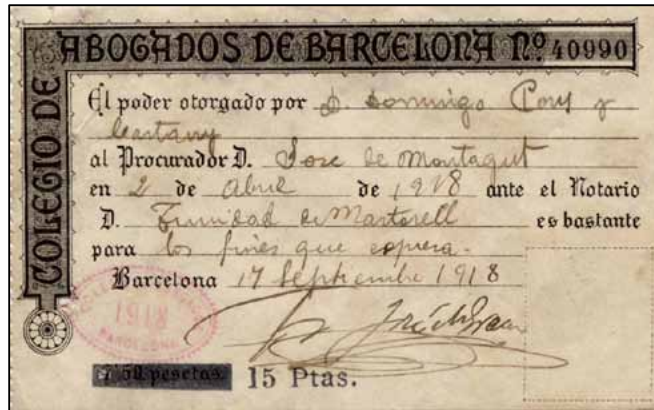 COLEGIO DE
ABOGADOS DE BARCELONA Nº 40990
El poder otorgado por D. Domingo Pons y
al Procurador D. Jose de Montagut
en 2 de Abril de 1918 ante el Notario
D. Trinidad de Martorell es bastante
para los fines que expresa.
Barcelona 17 Septiembre 1918
1918
BARCELONA
pesetas. 15 Ptas.